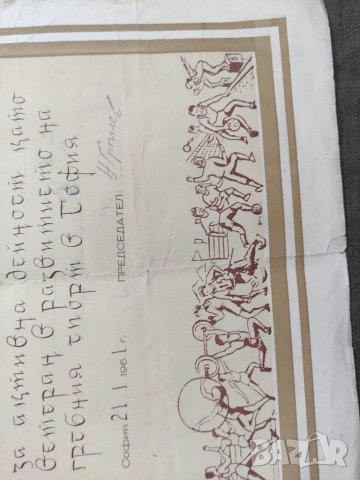 за активна дейност като
ветеран в развитието на
гребния спорт в София
София 21 I 1961 г.
ПРЕДСЕДАТЕЛ:
BAZAR